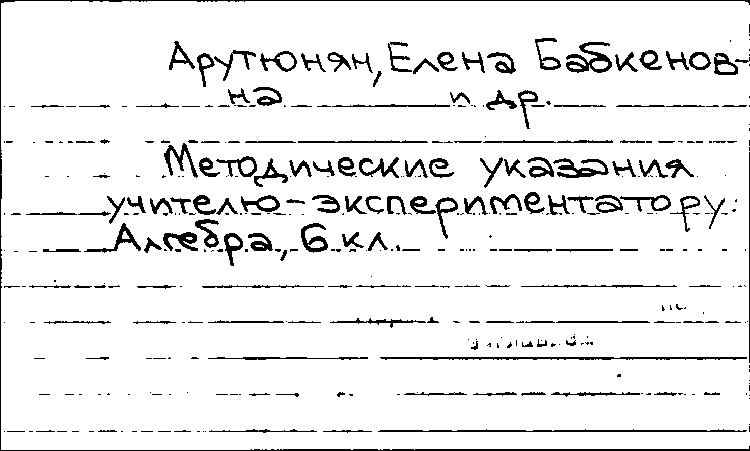 Арутюнян, Елена Бабкенов-
на и др.
Методические указания
учителю-экспериментатору:
Алгебра, 6 кл.